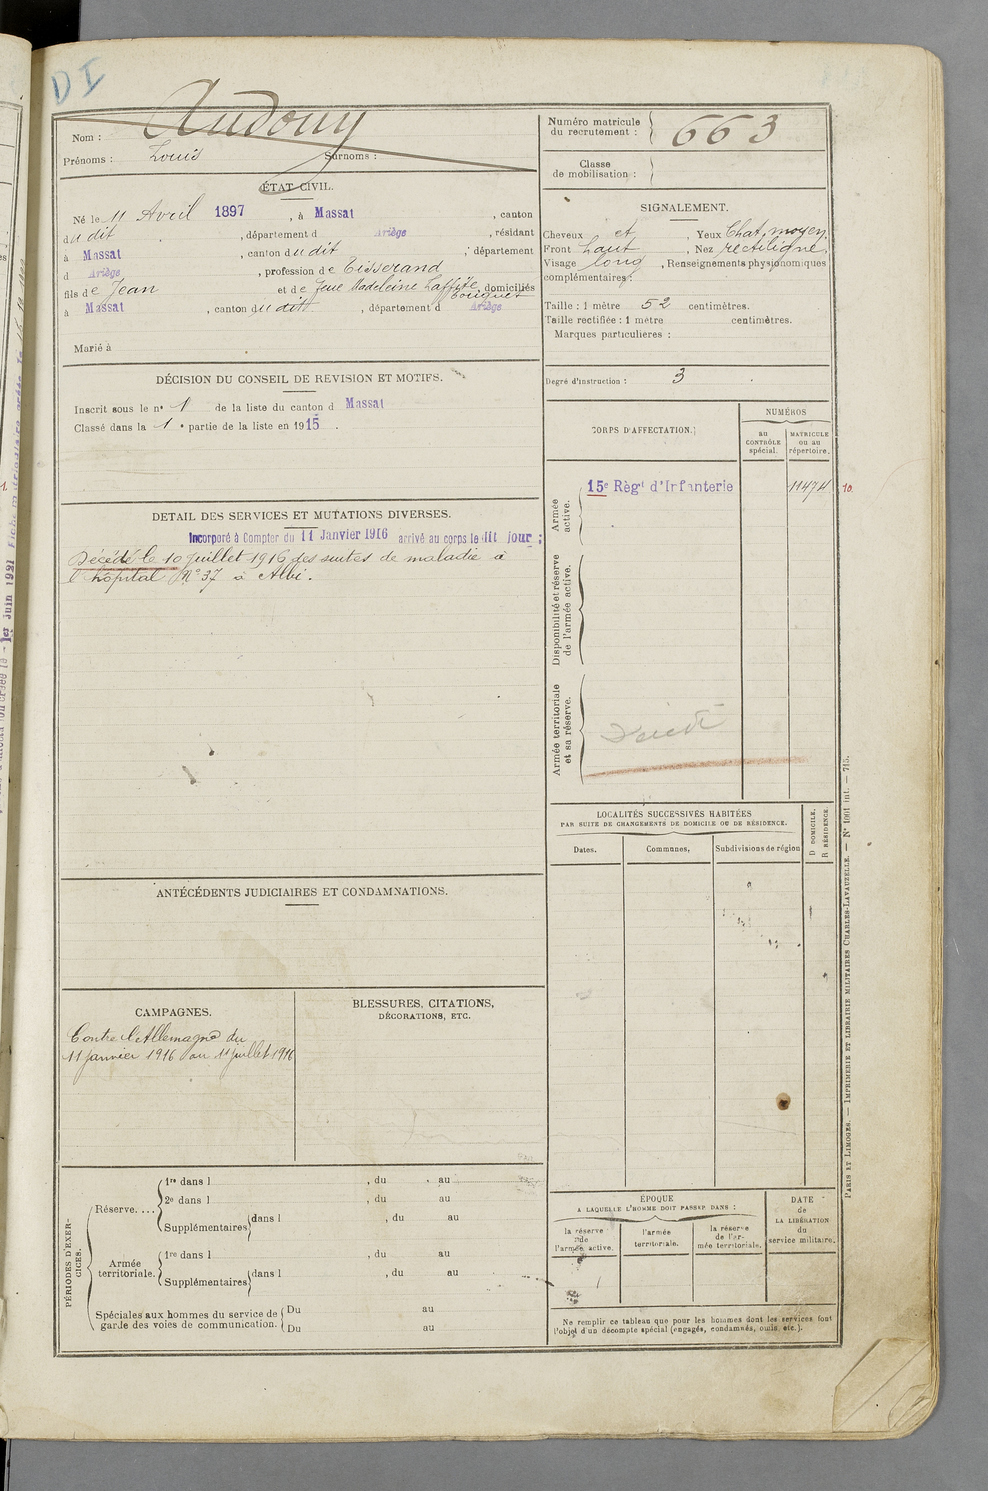 DI
Nom : Audouy
Prénoms : Louis Surnoms :
Numéro matricule
du recrutement : 663
Classe
de mobilisation :
ÉTAT CIVIL.
Né le 11 Avril 1897, à Massat, canton
du dit, département d Ariège, résidant
à Massat, canton du dit, département
d Ariège, profession de Tisserand
fils de Jean et de feue Madeleine Laffite, domiciliés
Bouguet
à Massat, canton du dit, département d Ariège
Marié à
SIGNALEMENT.
Cheveux et, Yeux Chat. moyen
Front haut, Nez rectiligne
Visage long, Renseignements physionomiques
complémentaires :
Taille : 1 mètre 52 centimètres.
Taille rectifiée : 1 mètre centimètres.
Marques particulières :
Degré d'instruction : 3
DÉCISION DU CONSEIL DE REVISION ET MOTIFS.
Inscrit sous le n° 1 de la liste du canton d Massat
Classé dans la 1e partie de la liste en 1915.
DÉTAIL DES SERVICES ET MUTATIONS DIVERSES.
Incorporé à Compter du 11 Janvier 1916 arrivé au corps le dit jour ;
Décédé le 10 juillet 1916 des suites de maladie à
l'hôpital N° 37 à Albi.
CORPS D'AFFECTATION.
NUMÉROS
au
CONTRÔLE
spécial.
MATRICULE
ou au
répertoire.
Armée
active.
15e Règt d'Infanterie 11474
10.
Disponibilité et réserve
de l'armée active.
Armée territoriale
et sa réserve.
Décédé
LOCALITÉS SUCCESSIVES HABITÉES
PAR SUITE DE CHANGEMENTS DE DOMICILE OU DE RÉSIDENCE.
Dates.
Communes.
Subdivisions de région
D DOMICILE.
R RÉSIDENCE.
ANTÉCÉDENTS JUDICIAIRES ET CONDAMNATIONS.
CAMPAGNES.
Contre l'Allemagne du
11 janvier 1916 au 11 juillet 1916
BLESSURES, CITATIONS,
DÉCORATIONS, ETC.
PÉRIODES D'EXER-
CICES.
Réserve....
1re dans l , du au
2e dans l , du au
Supplémentaires dans l , du au
Armée
territoriale.
1re dans l , du au
Supplémentaires dans l , du au
Spéciales aux hommes du service de
garde des voies de communication.
Du au
Du au
ÉPOQUE
A LAQUELLE L'HOMME DOIT PASSER DANS :
la réserve
de
l'armée active.
l'armée
territoriale.
la réserve
de l'ar-
mée territoriale.
DATE
de
LA LIBÉRATION
du
service militaire.
Ne remplir ce tableau que pour les hommes dont les services font
l'objet d'un décompte spécial (engagés, condamnés, omis, etc.).
PARIS ET LIMOGES. — IMPRIMERIE ET LIBRAIRIE MILITAIRES CHARLES-LAVAUZELLE. — N° 1001 int. — 715.
1er Juin 1921